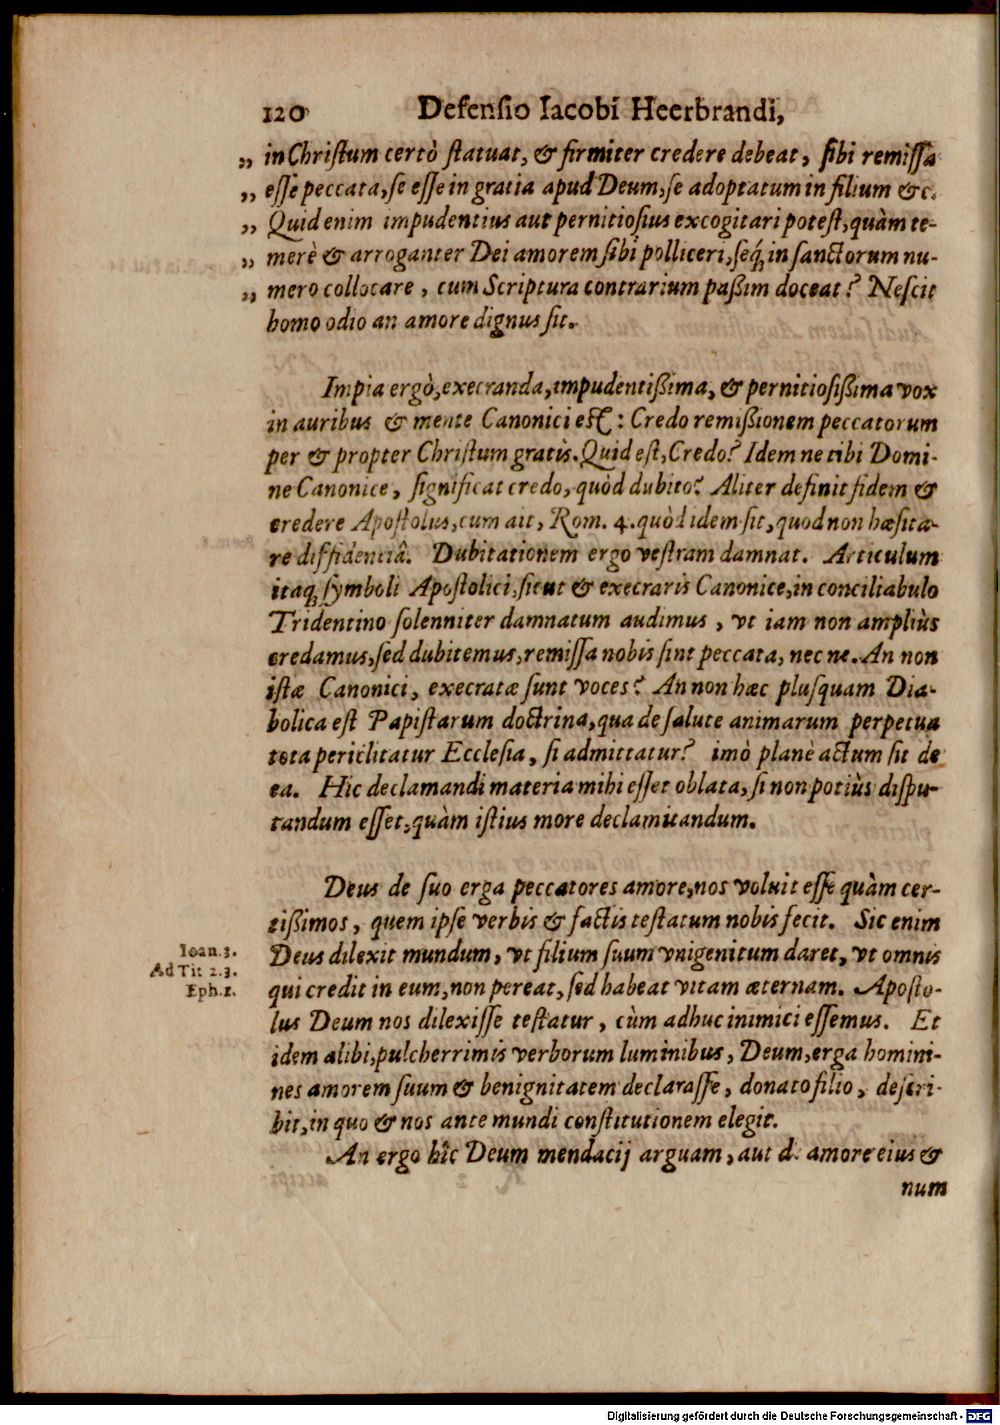 120 Defensio Iacobi Heerbrandi,
„ in Christum certò statuat, & firmiter credere debeat, sibi remissa
„ esse peccata, se esse in gratia apud Deum, se adoptatum in filium &c.
„ Quid enim impudentius aut pernitiosius excogitari potest, quàm te-
„ merè & arroganter Dei amorem sibi polliceri, seq́; in sanctorum nu-
„ mero collocare, cum Scriptura contrarium paßim doceat? Nescit
homo odio an amore dignus sit.
Impia ergò, execranda, impudentißima, & pernitiosißima vox
in auribus & mente Canonici est: Credo remißionem peccatorum
per & propter Christum gratis. Quid est, Credo? Idem ne tibi Domi-
ne Canonice, significat credo, quòd dubito? Aliter definit fidem &
credere Apostolus, cum ait, Rom. 4. quòd idem sit, quod non hæsita-
re diffidentiâ. Dubitationem ergo vestram damnat. Articulum
itaq; symboli Apostolici, sicut & execraris Canonice, in conciliabulo
Tridentino solenniter damnatum audimus, vt iam non ampliùs
credamus, sed dubitemus, remissa nobis sint peccata, nec ne. An non
istæ Canonici, execratæ sunt voces? An non hæc plusquam Dia-
bolica est Papistarum doctrina, qua de salute animarum perpetua
tota periclitatur Ecclesia, si admittatur? imò planè actum sit de
ea. Hic declamandi materia mihi esset oblata, si non potiùs dispu-
tandum esset, quàm istius more declamitandum.
Deus de suo erga peccatores amore, nos voluit esse quàm cer-
tißimos, quem ipse verbis & factis testatum nobis fecit. Sic enim
Ioan. 3. Deus dilexit mundum, vt filium suum vnigenitum daret, vt omnis
Ad Tit 2. 3. qui credit in eum, non pereat, sed habeat vitam æternam. Aposto-
Eph. 1. lus Deum nos dilexisse testatur, cùm adhuc inimici essemus. Et
idem alibi, pulcherrimis verborum luminibus, Deum, erga homini-
nes amorem suum & benignitatem declarasse, donato filio, descri-
bit, in quo & nos ante mundi constitutionem elegit.
An ergo hîc Deum mendacij arguam, aut de amore eius &
num
Digitalisierung gefördert durch die Deutsche Forschungsgemeinschaft - DFG